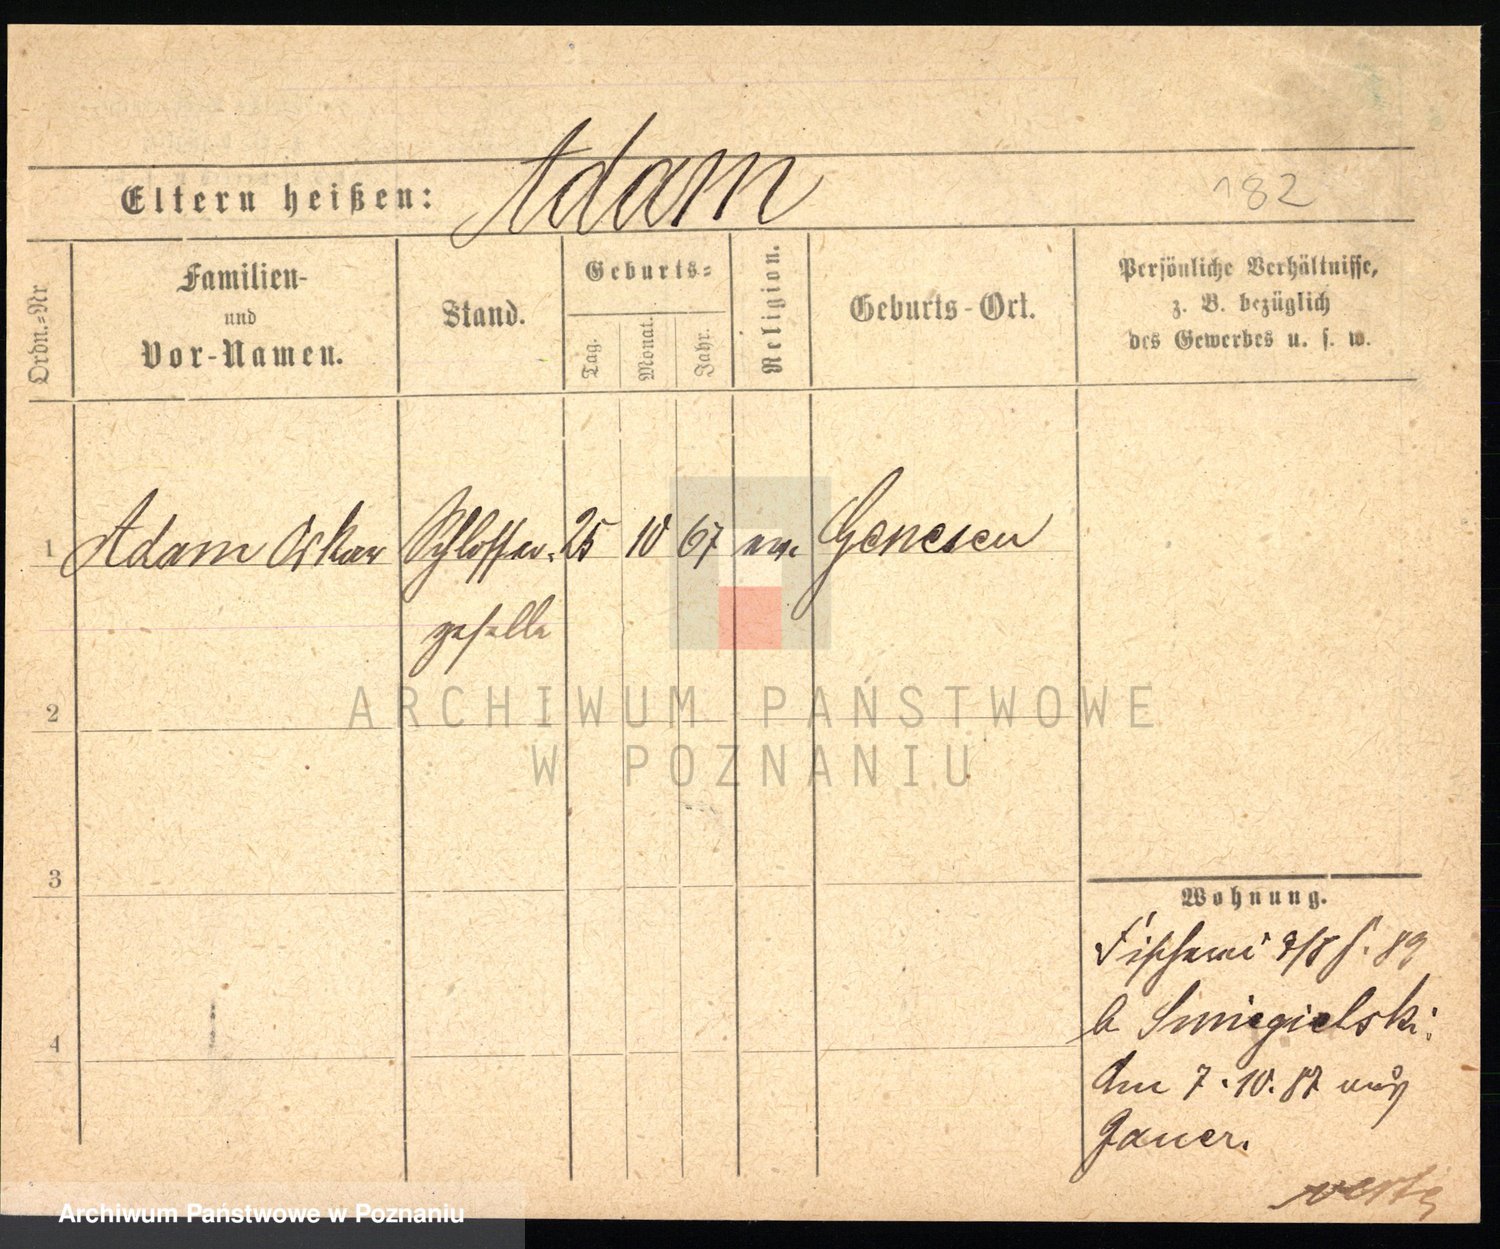 Adam
Eltern heißen:
182
Ordn.-Nr
Familien-
und
Vor-Namen.
Stand.
Geburts-
Tag.
Monat.
Jahr.
Religion.
Geburts-Ort.
Persönliche Verhältnisse,
z. B. bezüglich
des Gewerbes u. s. w.
1 Adam Oskar Schlosser- 25 10 67 Genesen
geselle
2
3
4
ARCHIWUM PAŃSTWOWE
W POZNANIU
Wohnung.
Fischerei 7/8
b Smiegielski.
Am 7.10.87 nach
Jauer.
verte
Archiwum Państwowe w Poznaniu